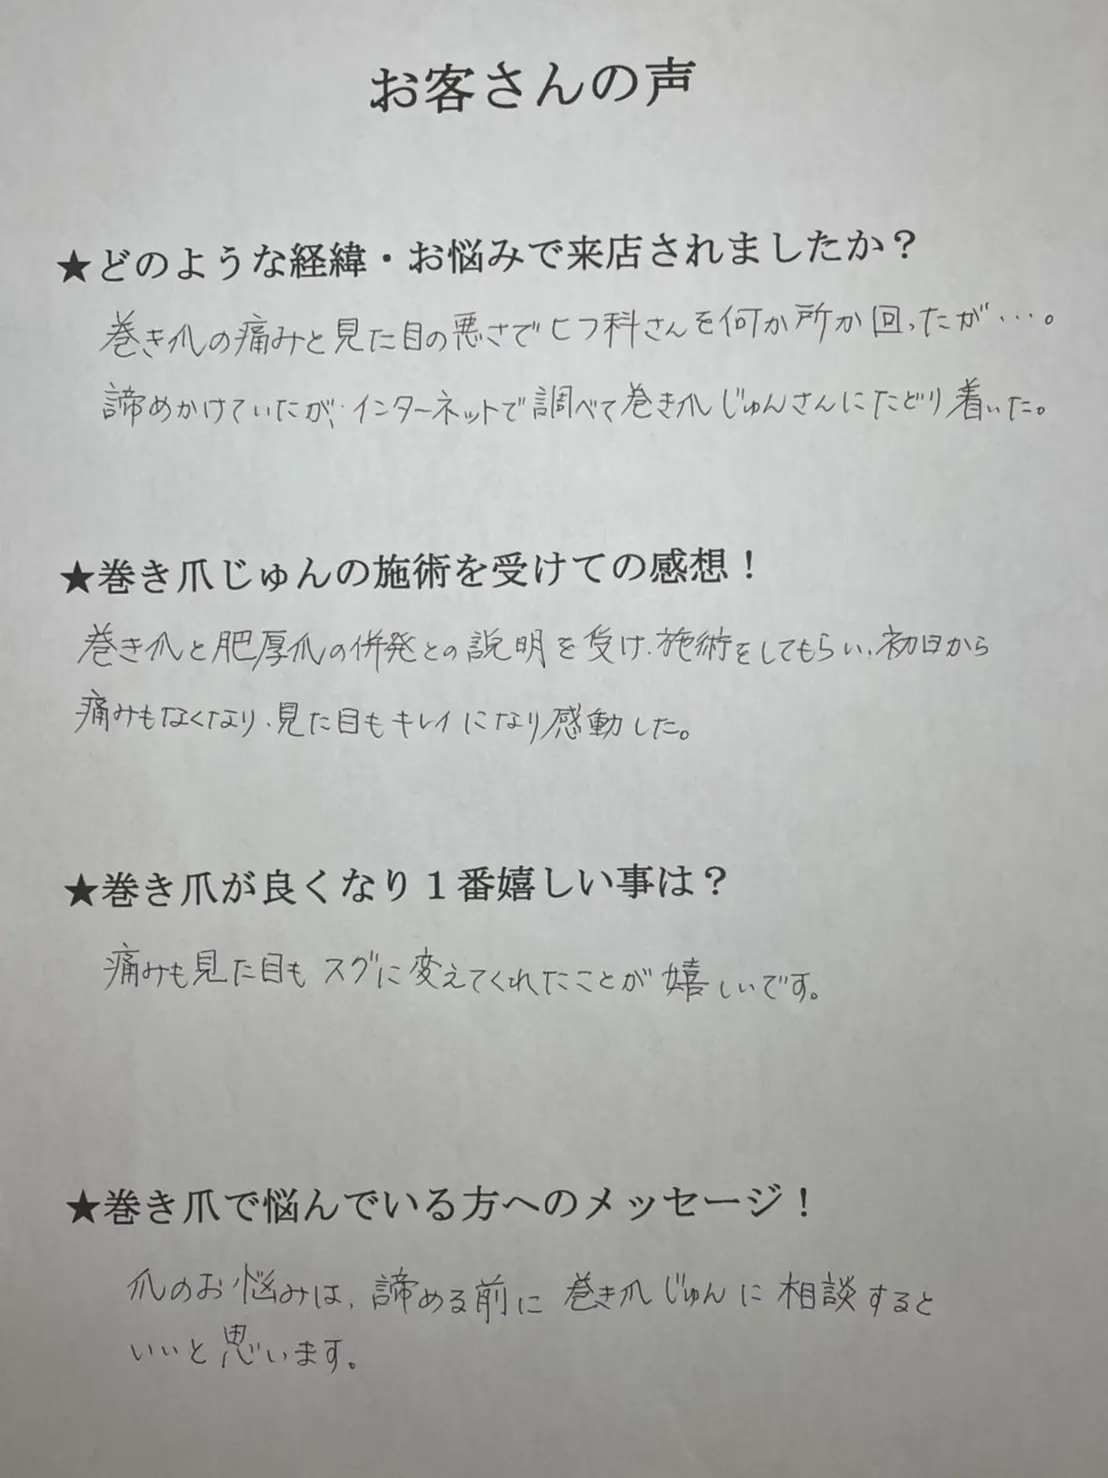 お客さんの声
★どのような経緯・お悩みで来店されましたか？
巻き爪の痛みと見た目の悪さでヒフ科さんを何か所か回ったが…。
諦めかけていたが、インターネットで調べて巻き爪じゅんさんにたどり着いた。
★巻き爪じゅんの施術を受けての感想！
巻き爪と肥厚爪の併発との説明を受け、施術をしてもらい、初日から
痛みもなくなり、見た目もキレイになり感動した。
★巻き爪が良くなり１番嬉しい事は？
痛みも見た目もスグに変えてくれたことが嬉しいです。
★巻き爪で悩んでいる方へのメッセージ！
爪のお悩みは、諦める前に巻き爪じゅんに相談すると
いいと思います。